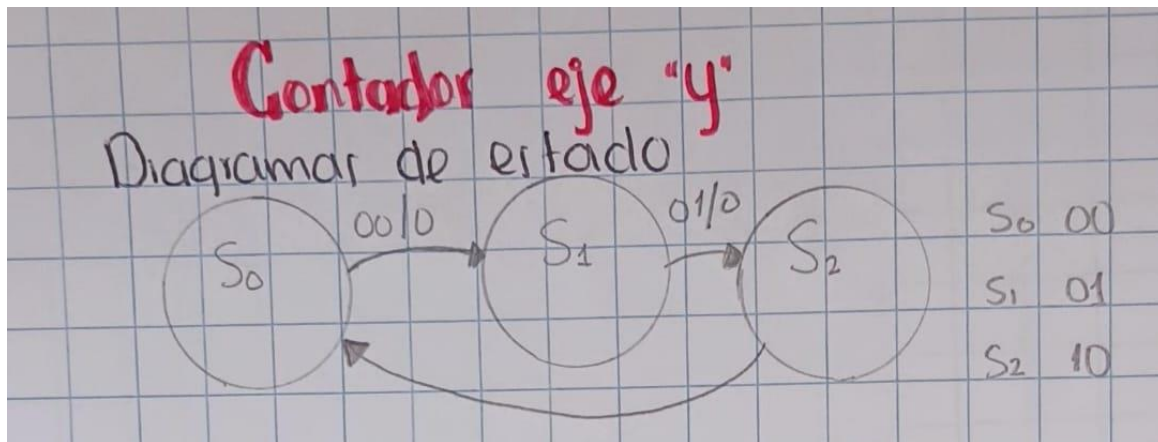 Contador eje "y"
Diagramas de estado
00/0 01/0
S0 S1 S2
S0 00
S1 01
S2 10